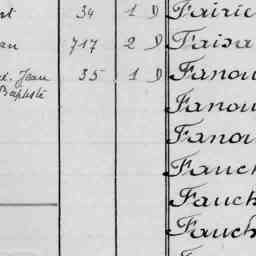 34 1 D Fairie
717 2 D Faisa
Jean 35 1 D Fanou
Baptiste
Fanou
Fanou
Fauch
Fauch
Fauch